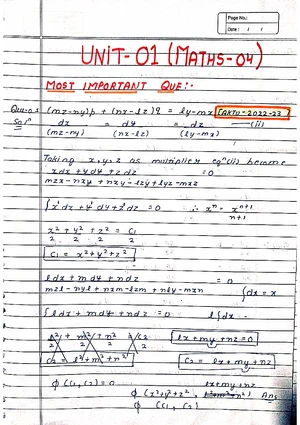 Page No.:
Date: / /
UNIT-01 (MATHS-04)
MOST IMPORTANT QUE:-
Que-01 (mz-ny)p + (nx-lz)q = ly-mx [AKTU-2022-23]
Sol^n dx = dy = dz —(ii)
(mz-ny) (nx-lz) (ly-mx)
Taking x,y,z as multiplier eq^n(ii) become
xdx + ydy + zdz = 0
mzx - nxy + nxy - lzy + lyz - mxz
∫x'dx + y'dy + z'dz = 0 ∴ x^n = x^(n+1)
n+1
x² + y² + z² = C1
2 2 2 2
C1 = x²+y²+z²
ldx + mdy + ndz = 0
mzl - nyl + nxm - lzm + nly - mxn ∫dx = x
∫ldx + mdy + ndz = 0 l∫dx -
l² + m² + n² C2 lx+my+nz=0
2 2 2 2
C2 = l²+m²+n² C2 = lx+my+nz
lx+my+nz
φ(C1, C2)=0 φ(x²+y²+z², l²+m²+n²) Ans
φ (C1, C2)